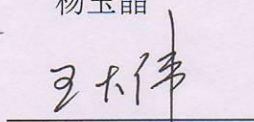 杨玉晶
王大伟